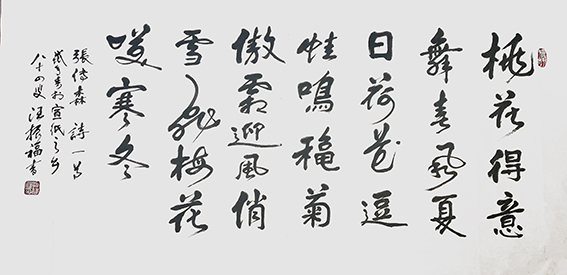 桃花得意
舞春風夏
日荷花逗
蛙鳴穐菊
傲霜迎風俏
雪飛梅花
笑寒冬
張傳森 詩一首
於宣紙之鄉
八十四叟 汪振福書